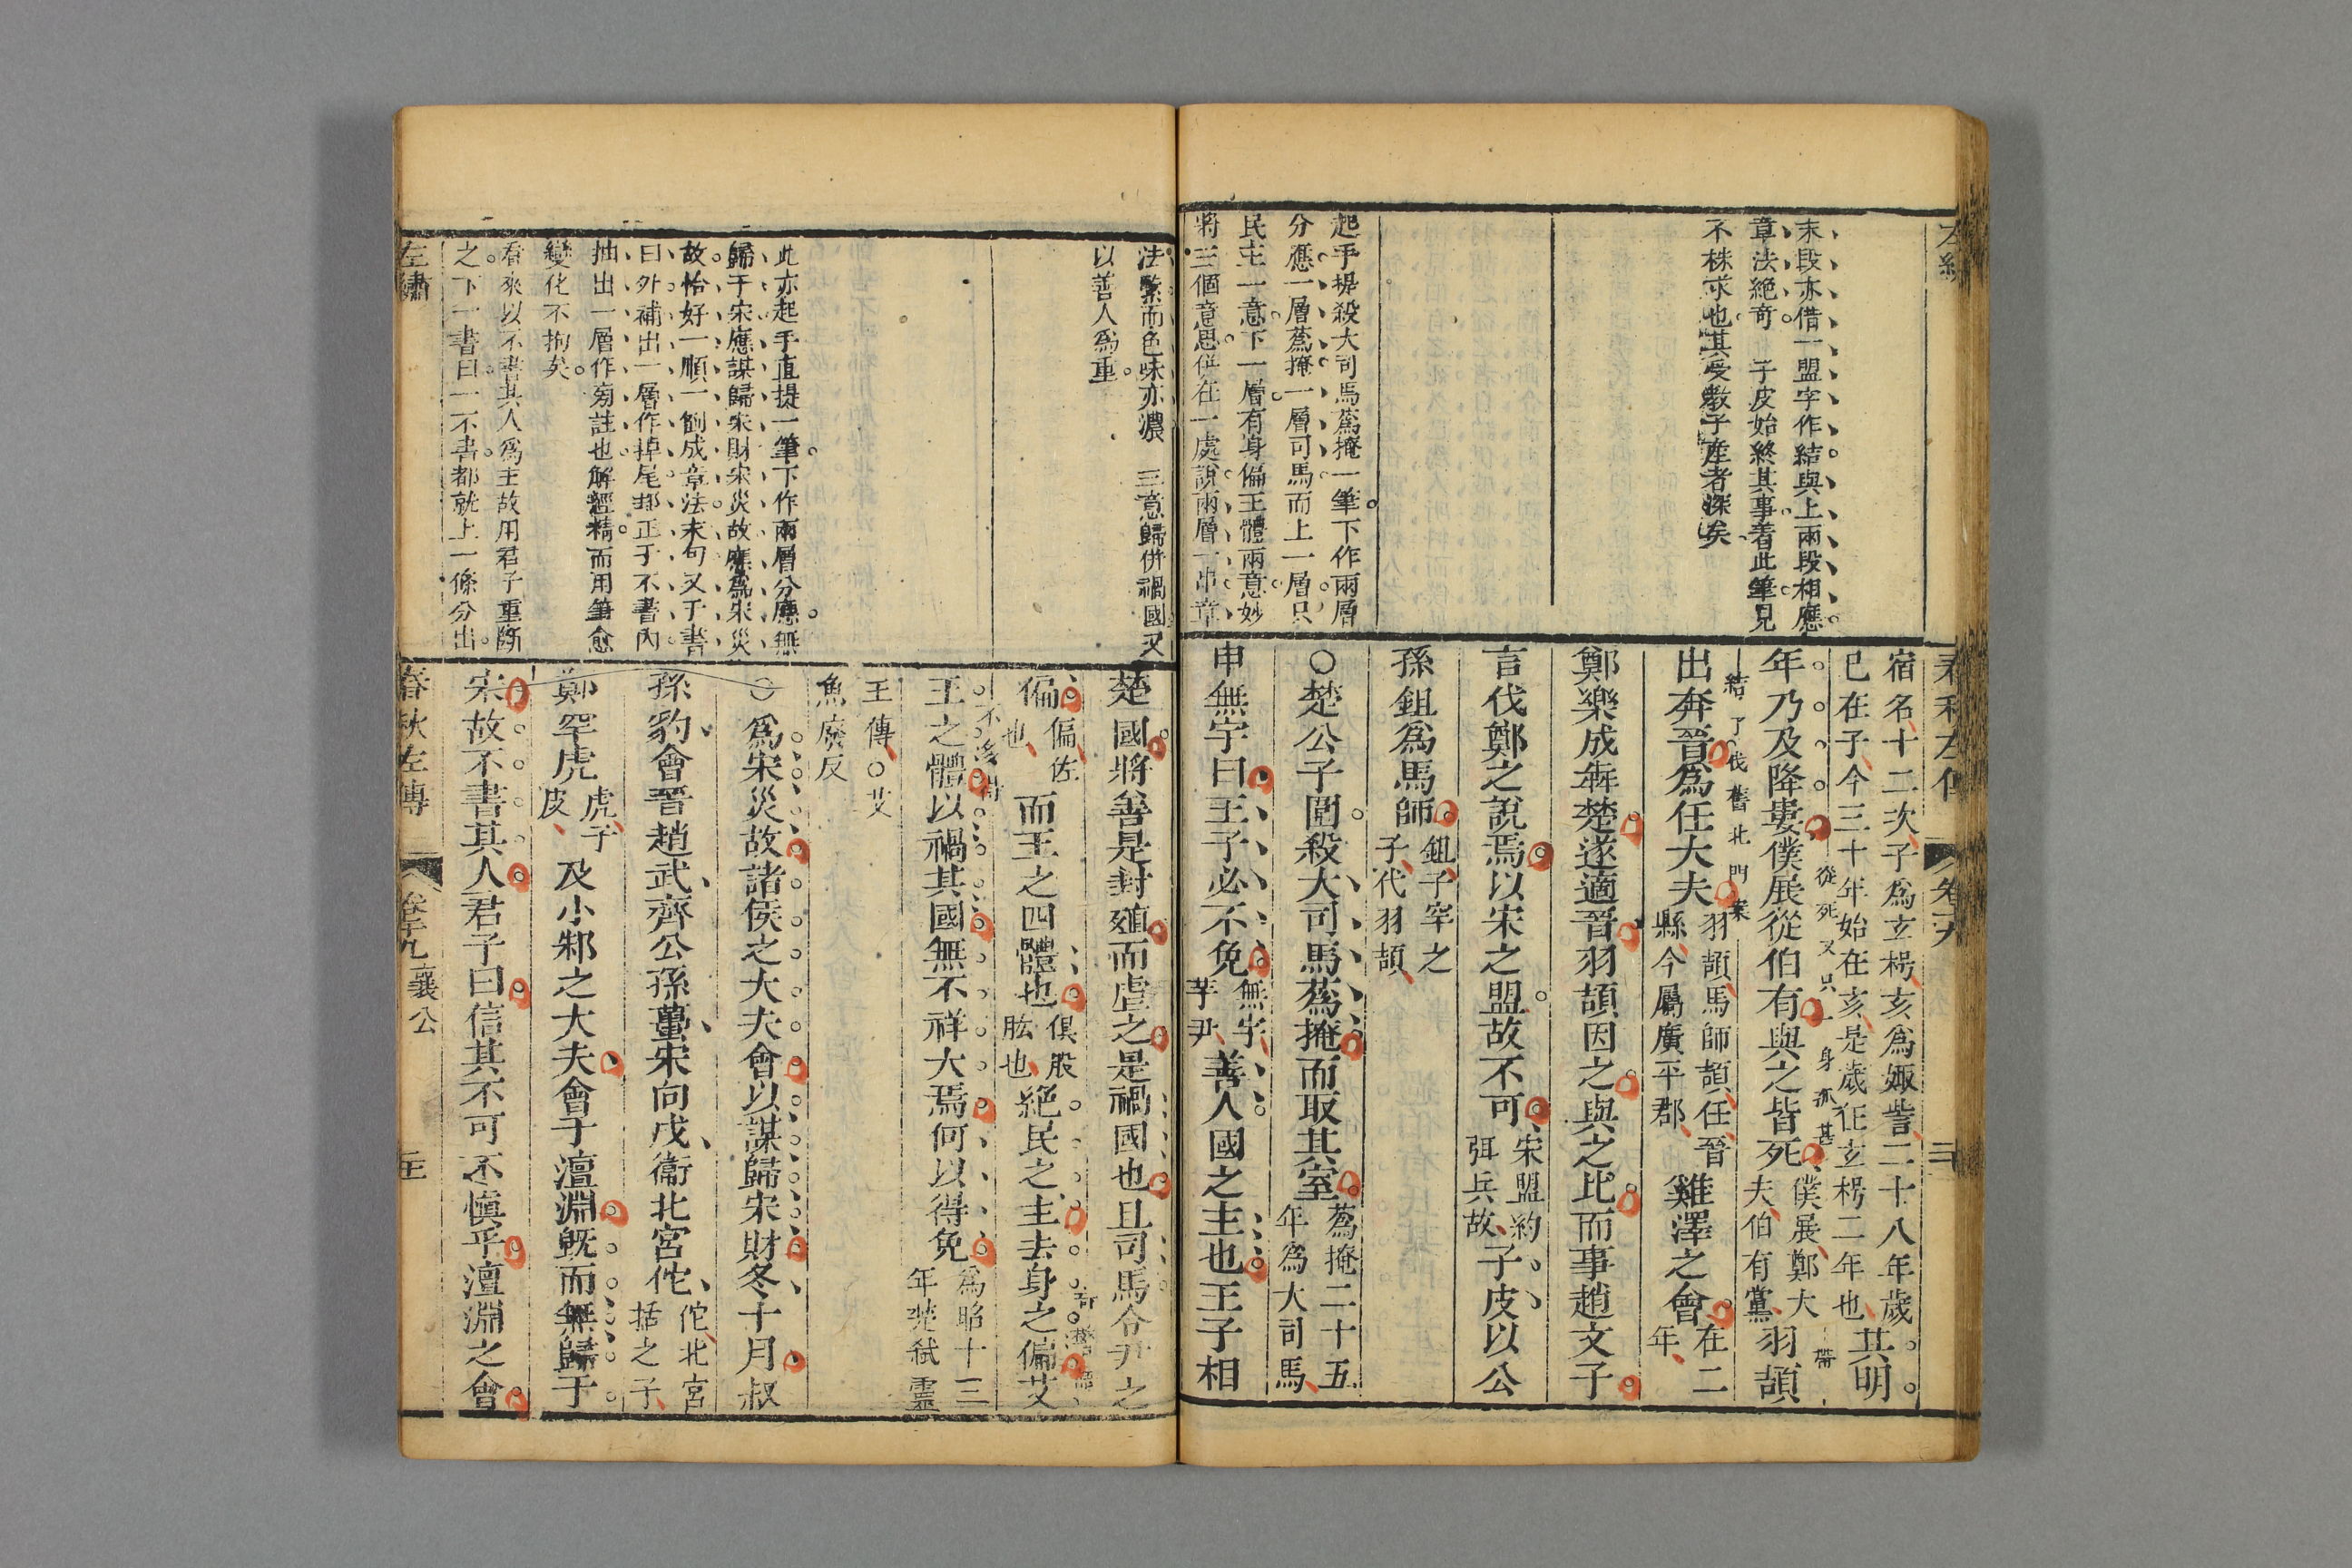 末段亦借一盟字作結與上兩段相應
章法絕奇　子皮始終其事者此筆見
不株求也其受教子產者深矣
起手提殺大司馬蒍掩一筆下作兩層
分應一層蒍掩一層司馬而上一層只
民主一意下一層有身偏王體兩意妙
將三個意思併在一處說兩層一串章
宿名十二次子為玄枵亥為娵訾二十八年歲
已在子今三十年始在亥是歲在玄枵二年也
其明
年乃及降婁僕展從伯有與之皆死
僕展鄭大
夫伯有黨
羽頡
從死又只一身孤甚
帶
出奔晉為任大夫
羽頡馬師頡任晉
縣今屬廣平郡
雞澤之會
在二
年
結了伐舊北門案
鄭樂成奔楚遂適晉羽頡因之與之比而事趙文子
言伐鄭之說焉以宋之盟故不可
宋盟約
弭兵故
子皮以公
孫鉏為馬師
鉏子罕之
子代羽頡
○楚公子圍殺大司馬蒍掩而取其室
蒍掩二十五
年為大司馬
申無宇曰王子必不免
無宇
芋尹
善人國之主也王子相
春秋左傳
法緊而色味亦濃　三意歸併禍國又
以善人為重
此亦起手直提一筆下作兩層分應無
歸于宋應謀歸宋財宋災故應為宋災
故恰好一順一劄成章法末句又于書
曰外補出一層作掉尾却正于不書內
抽出一層作旁註也解經精而用筆愈
變化不拘矣
看來以不書其人為主故用君子重斷
之下一書曰一不書都就上一條分出
楚國將善是封殖而虐之是禍國也且司馬令尹之
偏
偏佐
也
而王之四體也
俱股
肱也
絕民之主去身之偏艾
王之體以禍其國無不祥大焉何以得免
為昭十三
年楚弒靈
王傳○艾
魚廢反
○為宋災故諸侯之大夫會以謀歸宋財冬十月叔
孫豹會晉趙武齊公孫蠆宋向戌衞北宮佗
佗北宮
括之子
鄭罕虎
虎子
皮
及小邾之大夫會于澶淵既而無歸于
宋故不書其人君子曰信其不可不慎乎澶淵之會
左繡
春秋左傳
襄公